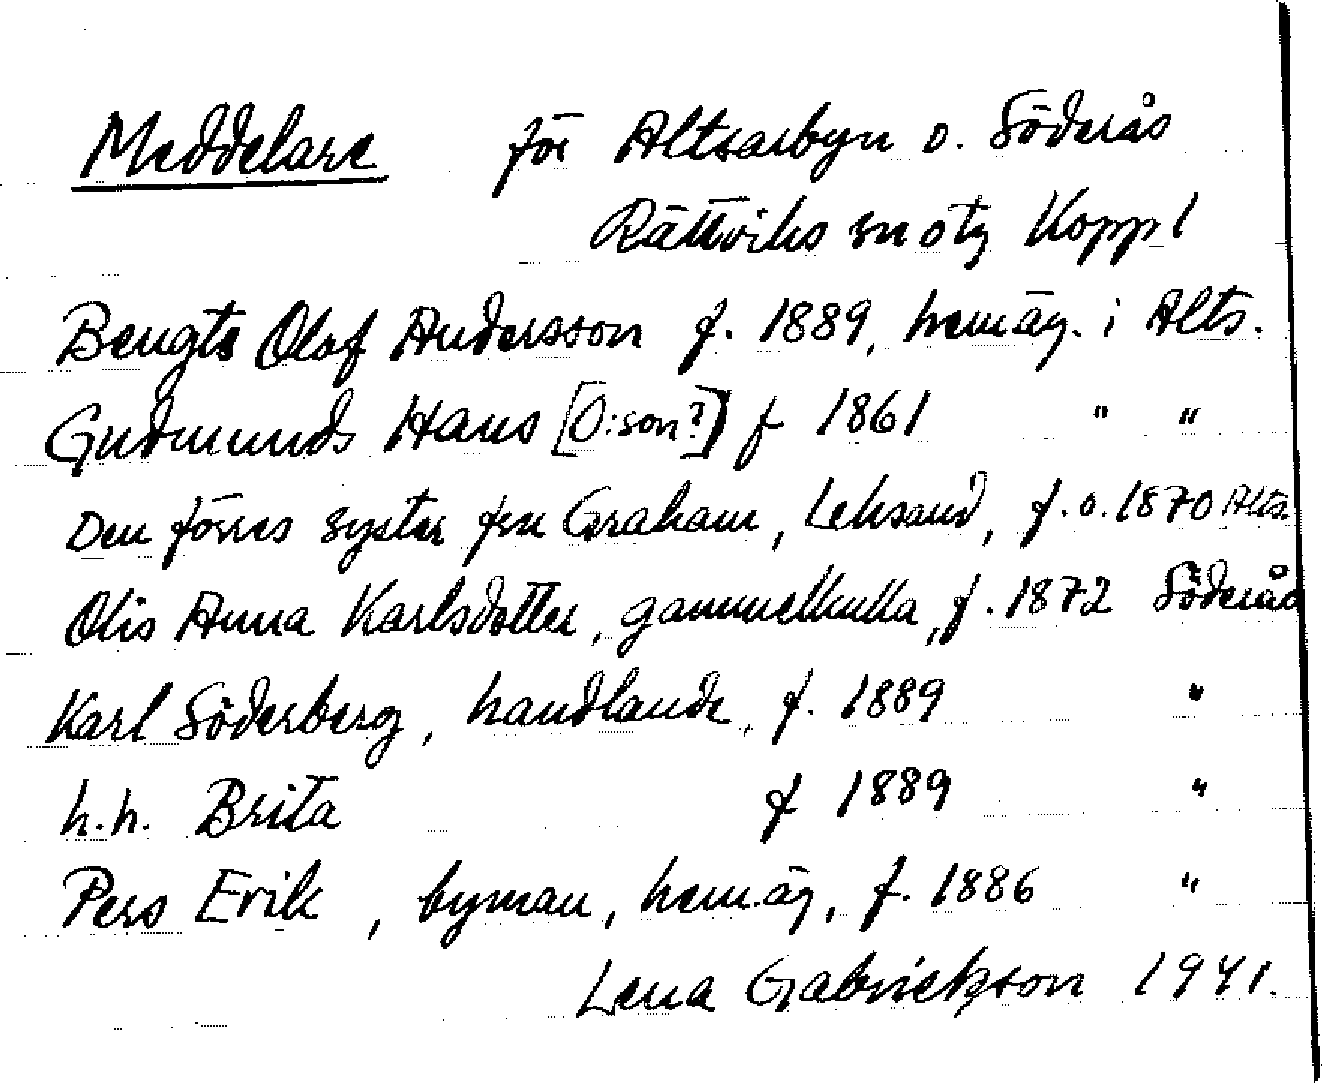 Meddelare för Altsarbyn o. Söderås
Rättviks sn o tg Koppl
Bengts Olof Andersson f. 1889, hemäg. i Alts.
Gudmunds Hans [O:son?] f 1861 " "
Den förres syster fru Graham, Leksand, f.o. 1870 Alts.
Olis Anna Karlsdotter, gammelkulla, f. 1872 Söderås
Karl Söderberg, handlande, f. 1889 "
h.h. Brita f 1889 "
Pers Erik, byman, hemäg, f. 1886 "
Lena Gabrielsson 1941.